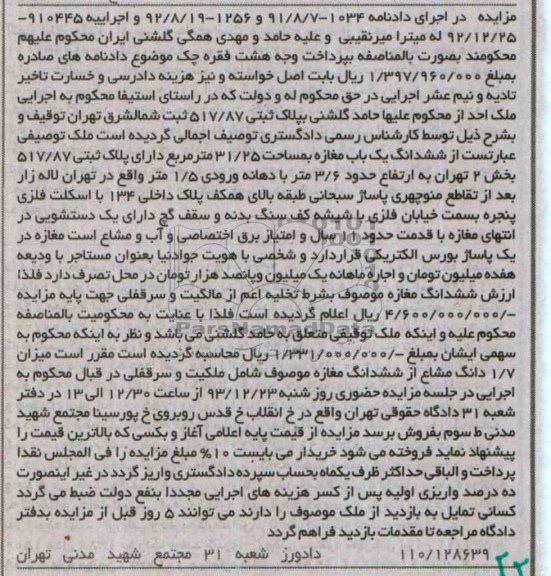 مزایده در اجرای دادنامه ۱۰۳۴-۹۱/۸/۷ و ۱۲۵۶-۹۲/۸/۱۹ و اجراییه ۹۱۰۴۴۵-
۹۲/۱۲/۲۵ له میترا میرنقیبی و علیه حامد و مهدی همگی گلشنی ایران محکوم علیهم
محکومند بصورت بالمناصفه بپرداخت وجه هشت فقره چک موضوع دادنامه های صادره
بمبلغ ۱/۳۹۷/۹۶۰/۰۰۰ ریال بابت اصل خواسته و نیز هزینه دادرسی و خسارت تاخیر
تادیه و نیم عشر اجرایی در حق محکوم له و دولت که در راستای استیفا محکوم به اجرایی
ملک احد از محکوم علیها حامد گلشنی بپلاک ثبتی ۵۱۷/۸۷ ثبت شمالشرق تهران توقیف و
بشرح ذیل توسط کارشناس رسمی دادگستری توصیف اجمالی گردیده است ملک توصیفی
عبارتست از ششدانگ یک باب مغازه بمساحت ۳۱/۲۵ مترمربع دارای پلاک ثبتی ۵۱۷/۸۷
بخش ۲ تهران به ارتفاع حدود ۳/۶ متر با دهانه ورودی ۱/۵ متر واقع در تهران لاله زار
بعد از تقاطع منوچهری پاساژ سبحانی طبقه بالای همکف پلاک داخلی ۱۳۴ با اسکلت فلزی
پنجره بسمت خیابان فلزی با شیشه کف سنگ بدنه و سقف گچ دارای یک دستشویی در
انتهای مغازه با قدمت حدود سال و امتیاز برق اختصاصی و آب و مشاع است مغازه در
یک پاساژ بورس الکتریکی قراردارد و شخصی با هویت جوادنیا بعنوان مستاجر با ودیعه
هفده میلیون تومان و اجاره ماهانه یک میلیون و پانصد هزار تومان در محل تصرف دارد فلذا
ارزش ششدانگ مغازه موصوف بشرط تخلیه اعم از مالکیت و سرقفلی جهت پایه مزایده
۴/۶۰۰/۰۰۰/۰۰۰/- ریال اعلام گردیده است فلذا با عنایت به محکومیت بالمناصفه
محکوم علیه و اینکه ملک توقیفی متعلق به حامد گلشنی می باشد و نظر به اینکه محکوم به
سهمی ایشان بمبلغ ۱/۳۳۱/۰۰۰/۰۰۰/- ریال محاسبه گردیده است مقرر است میزان
۱/۷ دانگ مشاع از ششدانگ مغازه موصوف شامل ملکیت و سرقفلی در قبال محکوم به
اجرایی در جلسه مزایده حضوری روز شنبه ۹۳/۱۲/۲۳ از ساعت ۱۲/۳۰ الی ۱۳ در دفتر
شعبه ۳۱ دادگاه حقوقی تهران واقع در خ انقلاب خ قدس روبروی خ پورسینا مجتمع شهید
مدنی ط سوم بفروش برسد مزایده از قیمت پایه اعلامی آغاز و بکسی که بالاترین قیمت را
پیشنهاد نماید فروخته می شود خریدار می بایست ۱۰% مبلغ مزایده را فی المجلس نقدا
پرداخت و الباقی حداکثر ظرف یکماه بحساب سپرده دادگستری واریز گردد در غیر اینصورت
ده درصد واریزی اولیه پس از کسر هزینه های اجرایی مجددا بنفع دولت ضبط می گردد
کسانی تمایل به بازدید از ملک موصوف را دارند می توانند ۵ روز قبل از مزایده بدفتر
دادگاه مراجعه تا مقدمات بازدید فراهم گردد
۱۱۰/۱۲۸۶۳۹ دادورز شعبه ۳۱ مجتمع شهید مدنی تهران
ParsNamadData